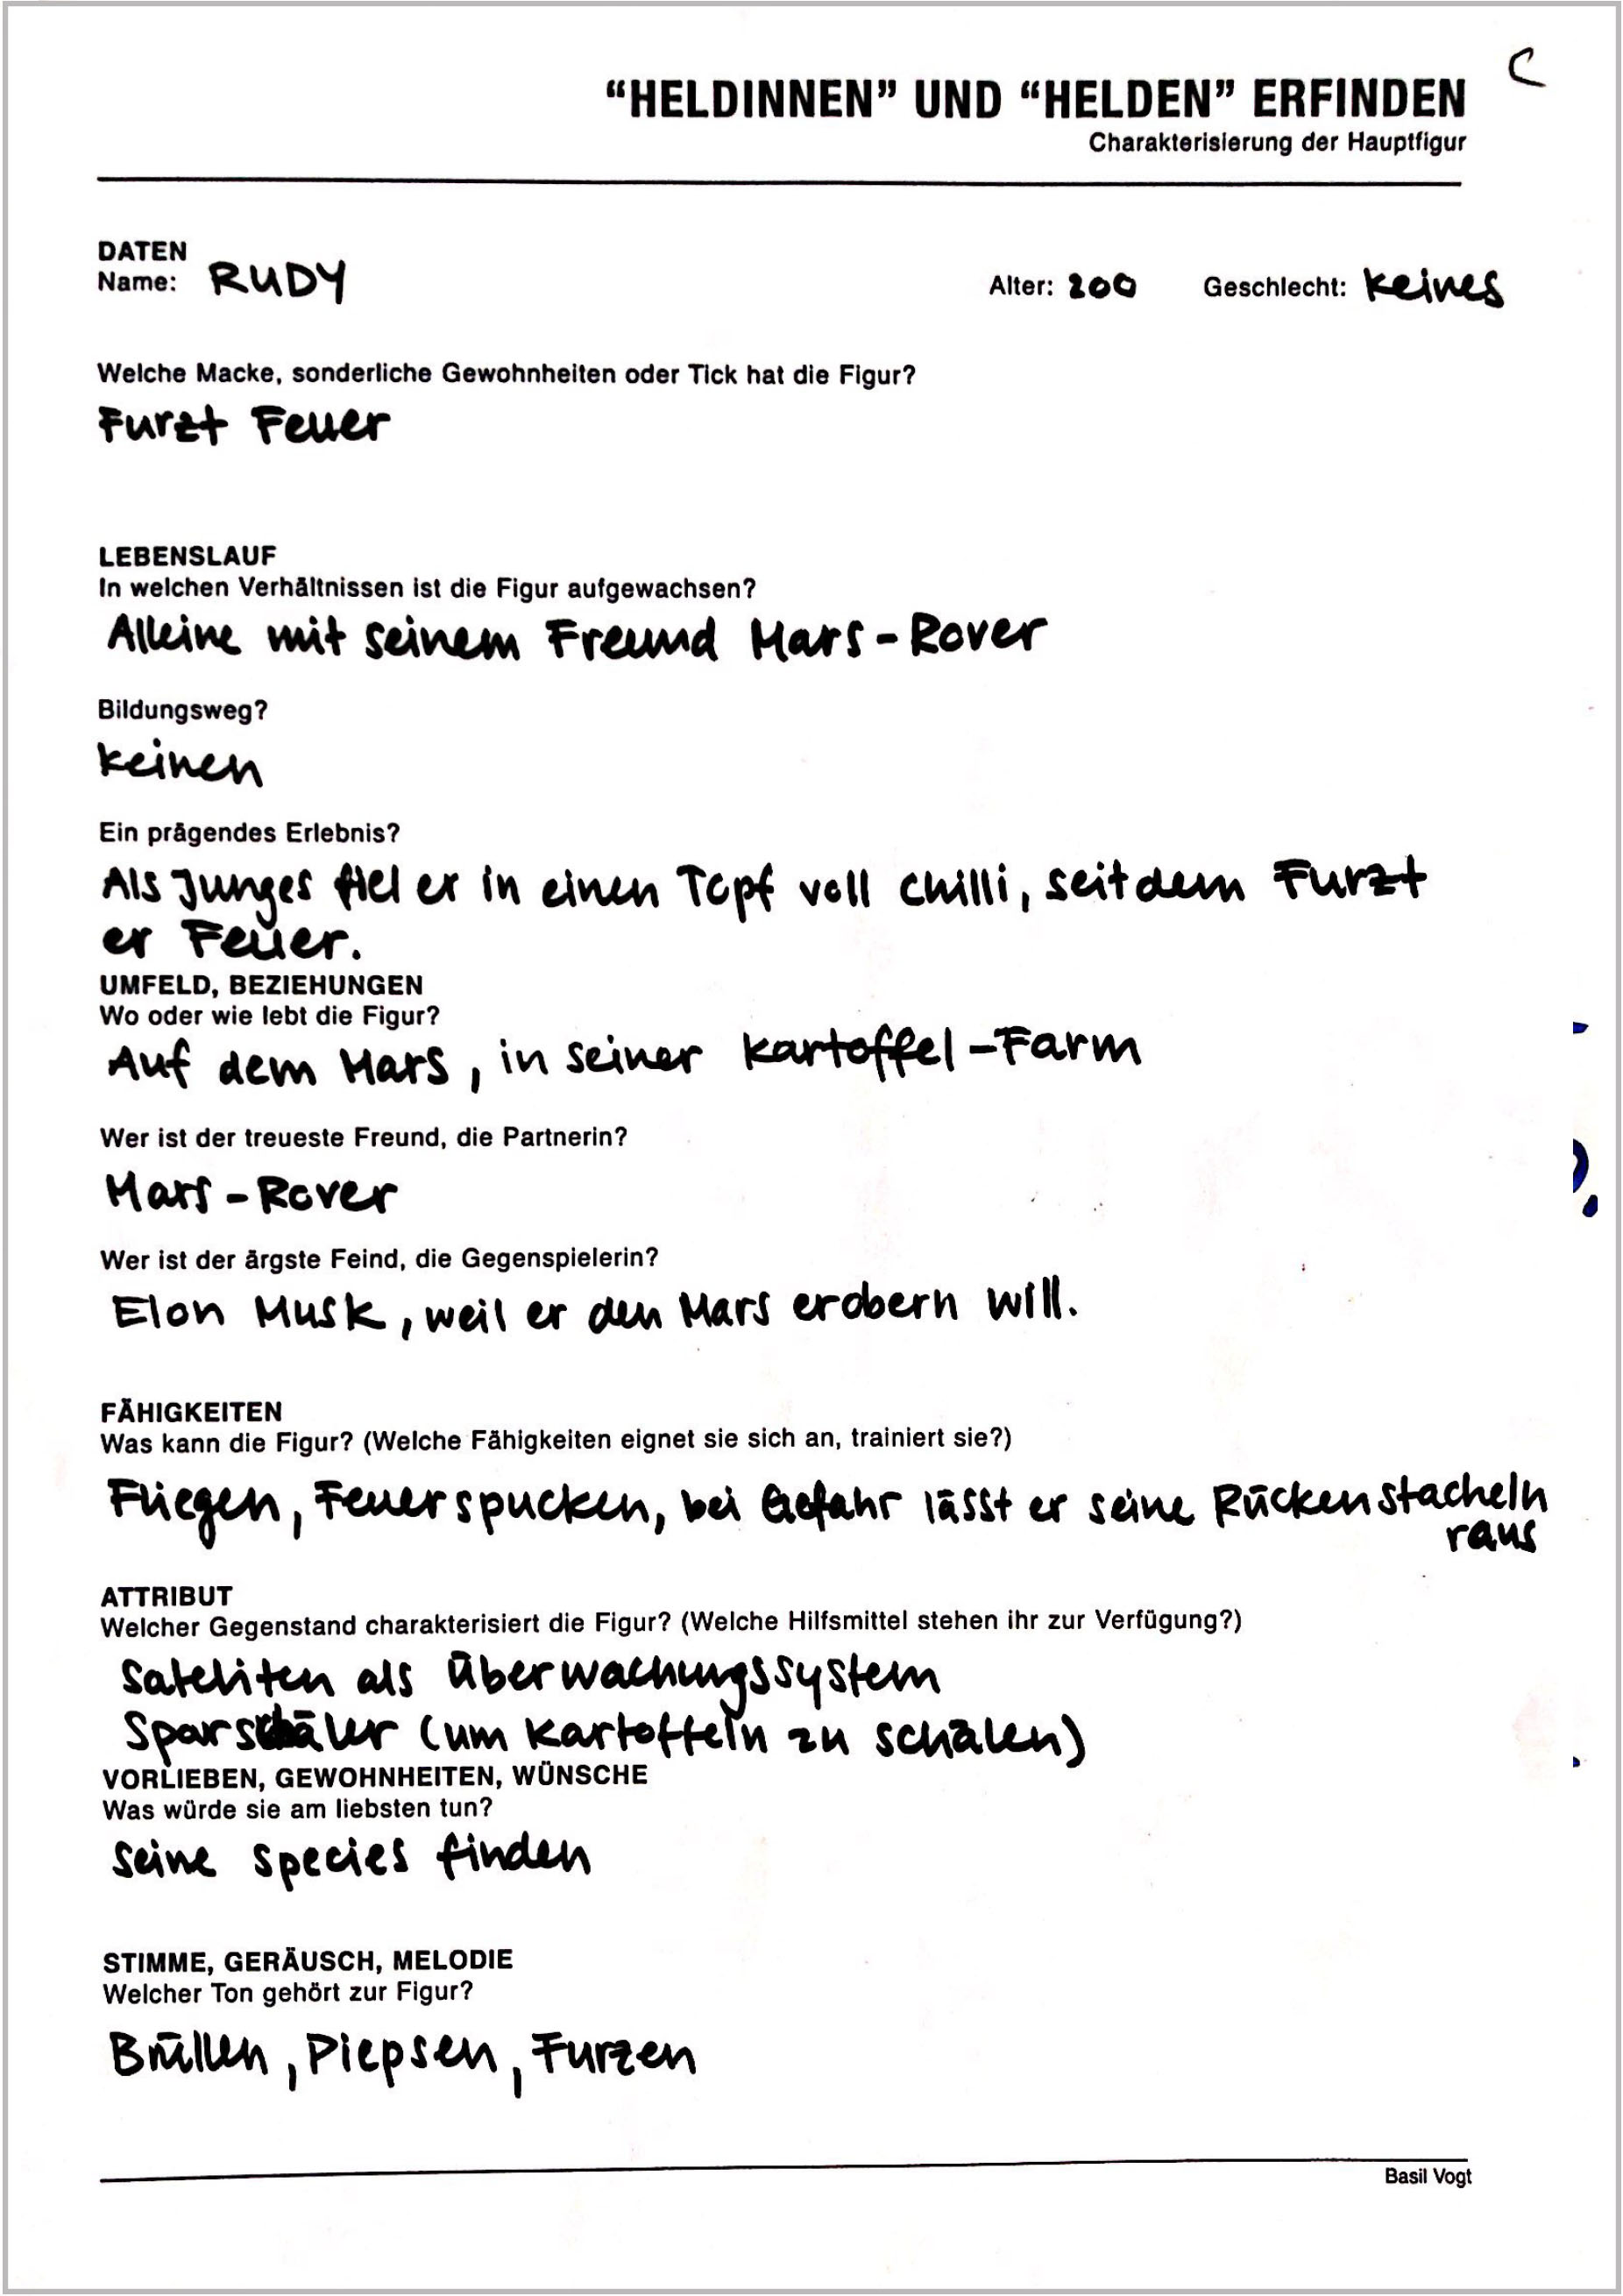 C
“HELDINNEN” UND “HELDEN” ERFINDEN
Charakterisierung der Hauptfigur
DATEN
Name: RUDY Alter: 200 Geschlecht: keines
Welche Macke, sonderliche Gewohnheiten oder Tick hat die Figur?
Furzt Feuer
LEBENSLAUF
In welchen Verhältnissen ist die Figur aufgewachsen?
Alleine mit seinem Freund Mars-Rover
Bildungsweg?
keinen
Ein prägendes Erlebnis?
Als Junges fiel er in einen Topf voll chilli, seitdem Furzt
er Feuer.
UMFELD, BEZIEHUNGEN
Wo oder wie lebt die Figur?
Auf dem Mars, in seiner Kartoffel-Farm
Wer ist der treueste Freund, die Partnerin?
Mars-Rover
Wer ist der ärgste Feind, die Gegenspielerin?
Elon Musk, weil er den Mars erobern will.
FÄHIGKEITEN
Was kann die Figur? (Welche Fähigkeiten eignet sie sich an, trainiert sie?)
Fliegen, Feuerspucken, bei Gefahr lässt er seine Rückenstacheln
raus
ATTRIBUT
Welcher Gegenstand charakterisiert die Figur? (Welche Hilfsmittel stehen ihr zur Verfügung?)
Sateliten als Überwachungssystem
Sparschäler (um Kartoffeln zu schälen)
VORLIEBEN, GEWOHNHEITEN, WÜNSCHE
Was würde sie am liebsten tun?
Seine Species finden
STIMME, GERÄUSCH, MELODIE
Welcher Ton gehört zur Figur?
Brüllen, Piepsen, Furzen
Basil Vogt